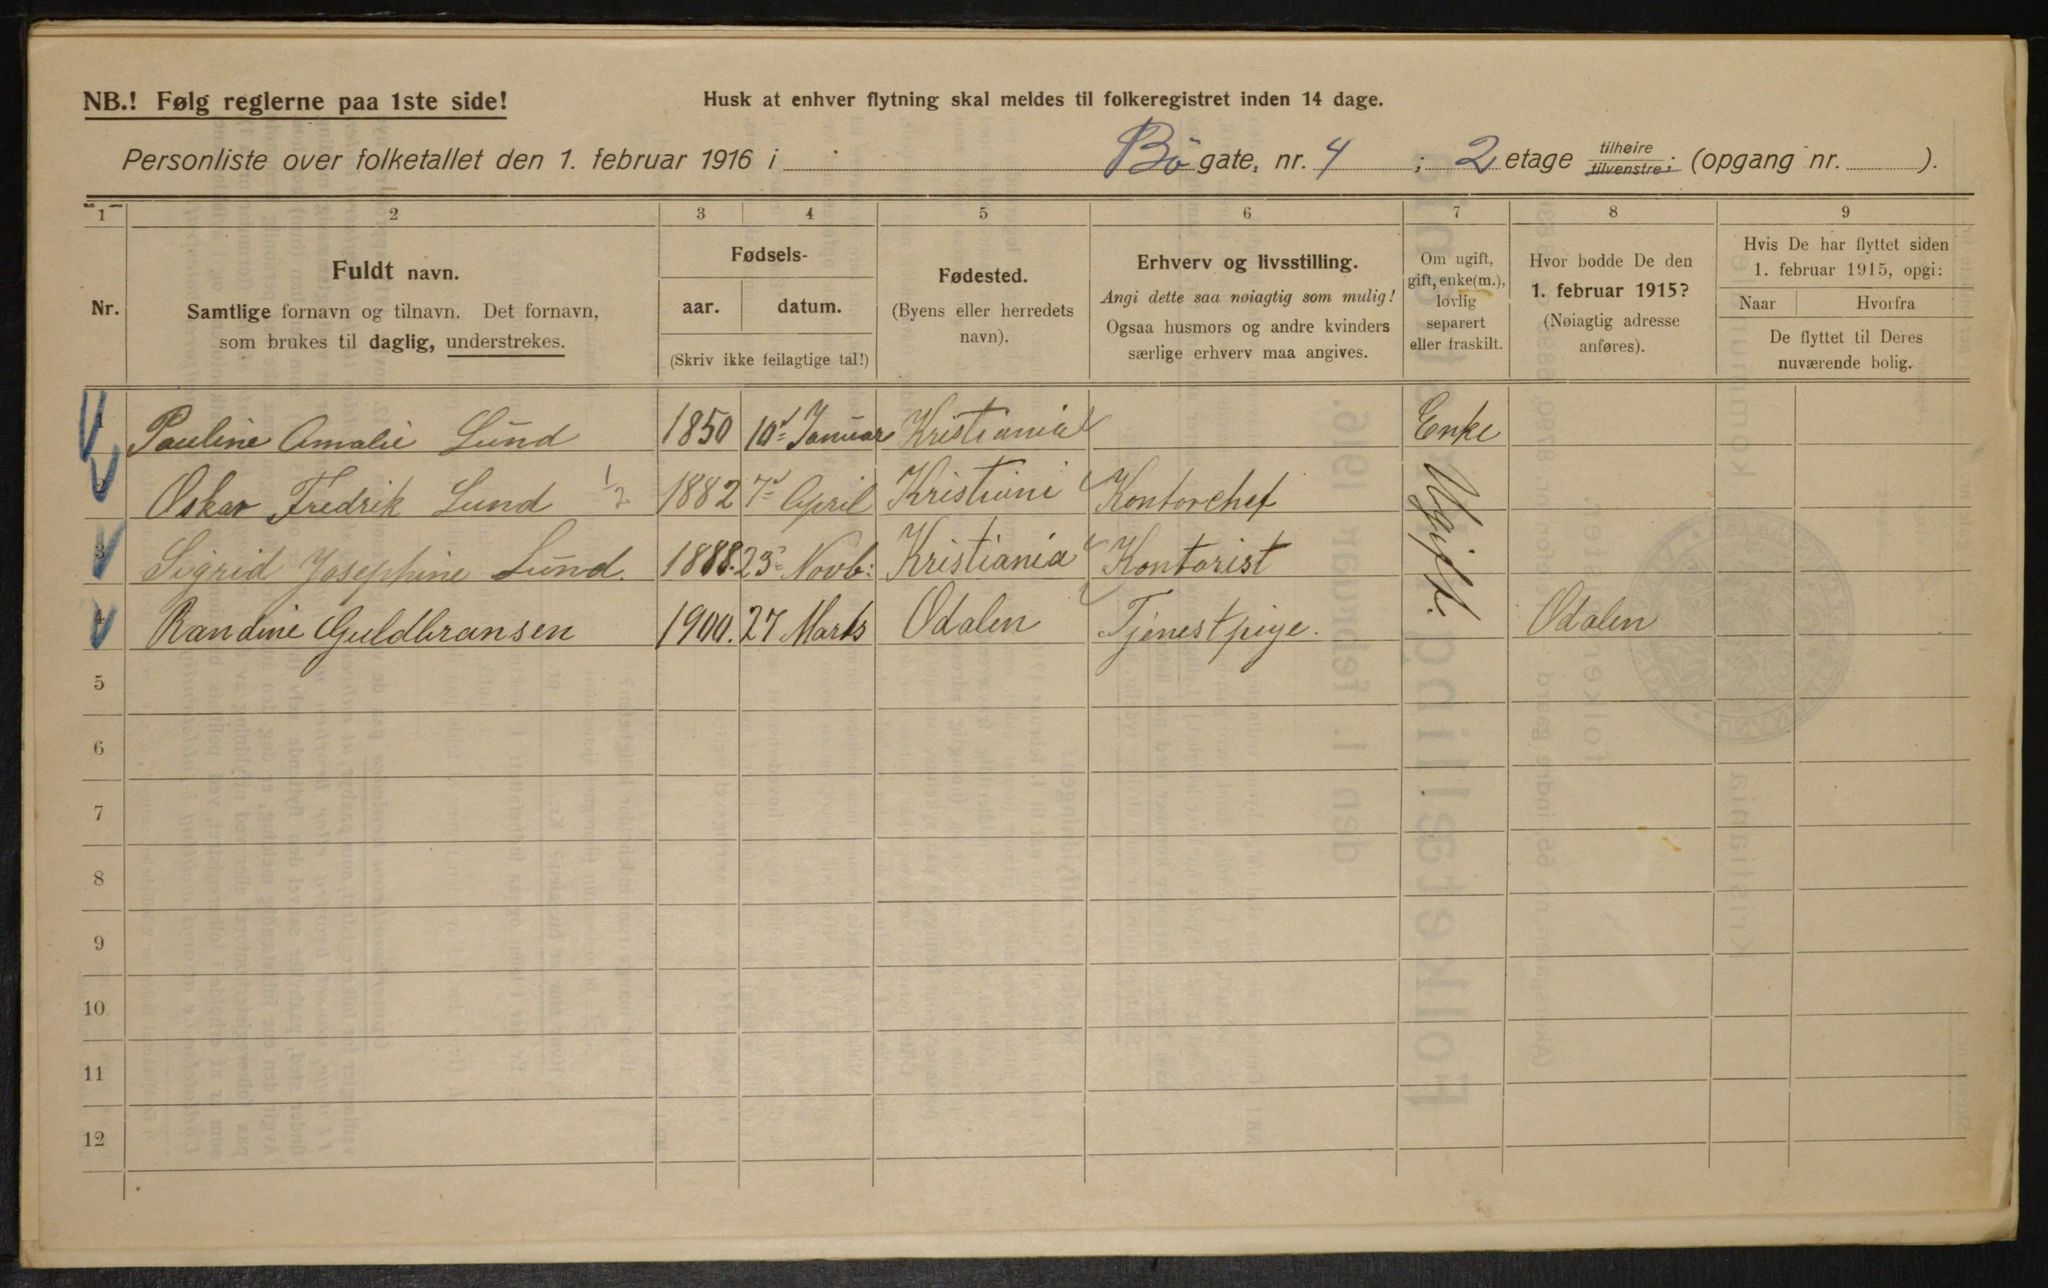 NB.! Følg reglerne paa 1ste side!
Husk at enhver flytning skal meldes til folkeregistret inden 14 dage.
Personliste over folketallet den 1. februar 1916 i Bø gate, nr. 4 ; 2 etage tilhøire tilvenstre; (opgang nr. ).
1 2 3 4 5 6 7 8 9
Nr.
Fuldt navn.
Samtlige fornavn og tilnavn. Det fornavn,
som brukes til daglig, understrekes.
Fødsels-
aar. datum.
(Skriv ikke feilagtige tal!)
Fødested.
(Byens eller herredets
navn).
Erhverv og livsstilling.
Angi dette saa nøiagtig som mulig!
Ogsaa husmors og andre kvinders
særlige erhverv maa angives.
Om ugift,
gift, enke(m.),
lovlig
separert
eller fraskilt.
Hvor bodde De den
1. februar 1915?
(Nøiagtig adresse
anføres).
Hvis De har flyttet siden
1. februar 1915, opgi:
Naar Hvorfra
De flyttet til Deres
nuværende bolig.
1 Pauline Amalie Lund 1850 10d Januar Kristiania Enke
2 Oskar Fredrik Lund 1/2 1882 7d April Kristiani Kontorchef Ugift.
3 Sigrid Josephine Lund. 1888. 23 Novb: Kristiania Kontorist
4 Randine Guldbransen 1900. 27 Marts Odalen Tjenestpige. Odalen
5
6
7
8
9
10
11
12